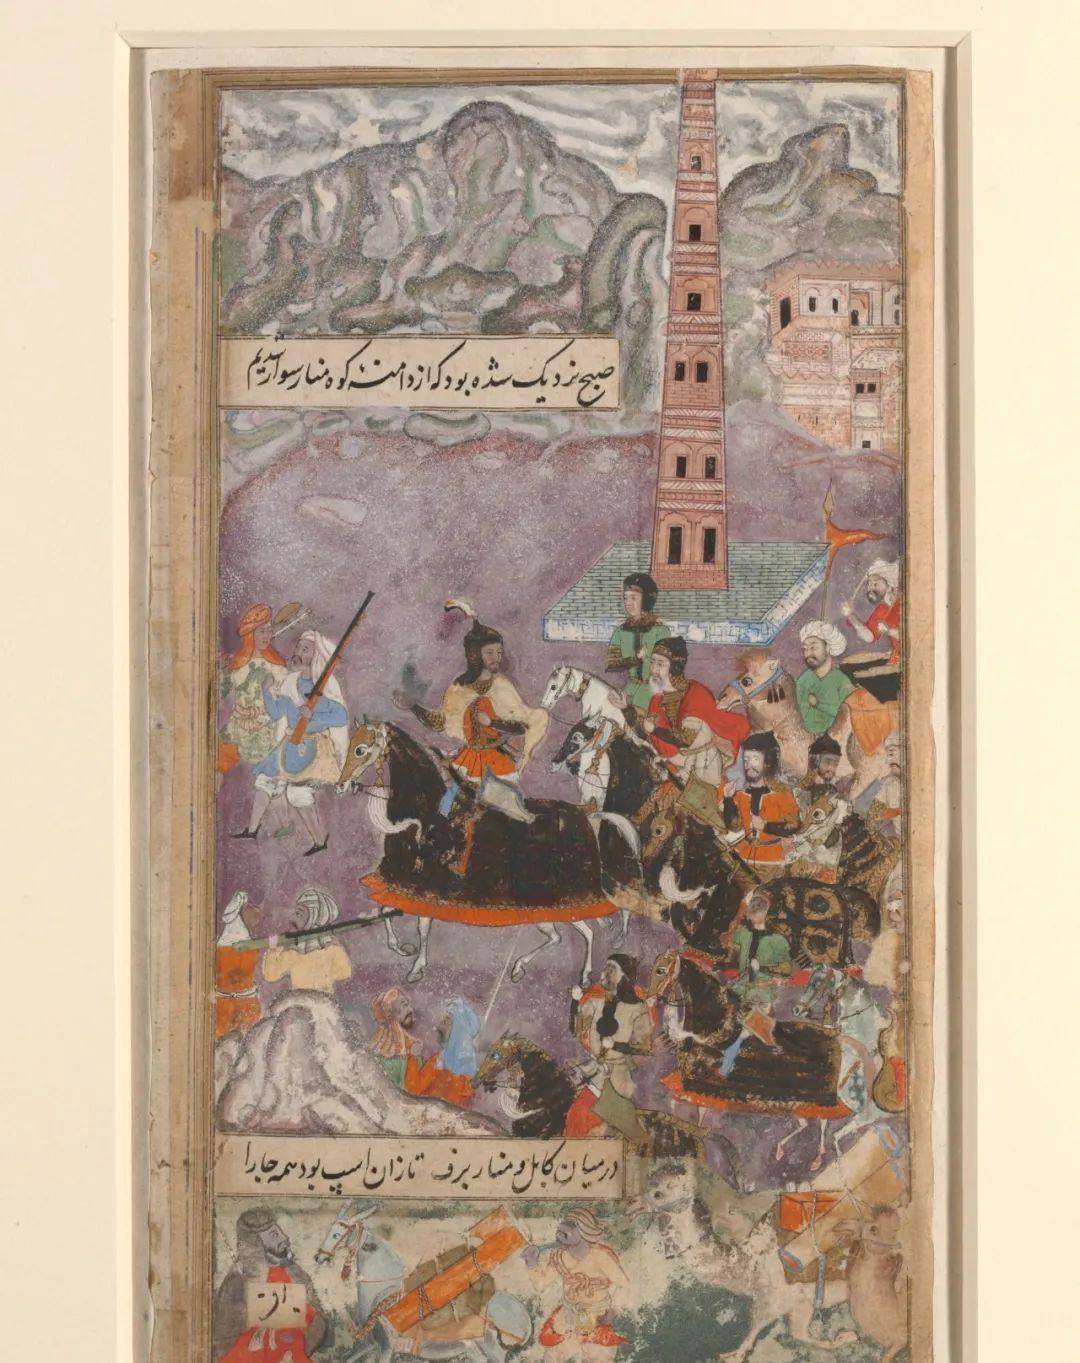 صبح نزدیک شده بود که از دامنه کوه منار سوار شدیم
درمیان کابل و منار برف تا زان اسپ بود همه جا را